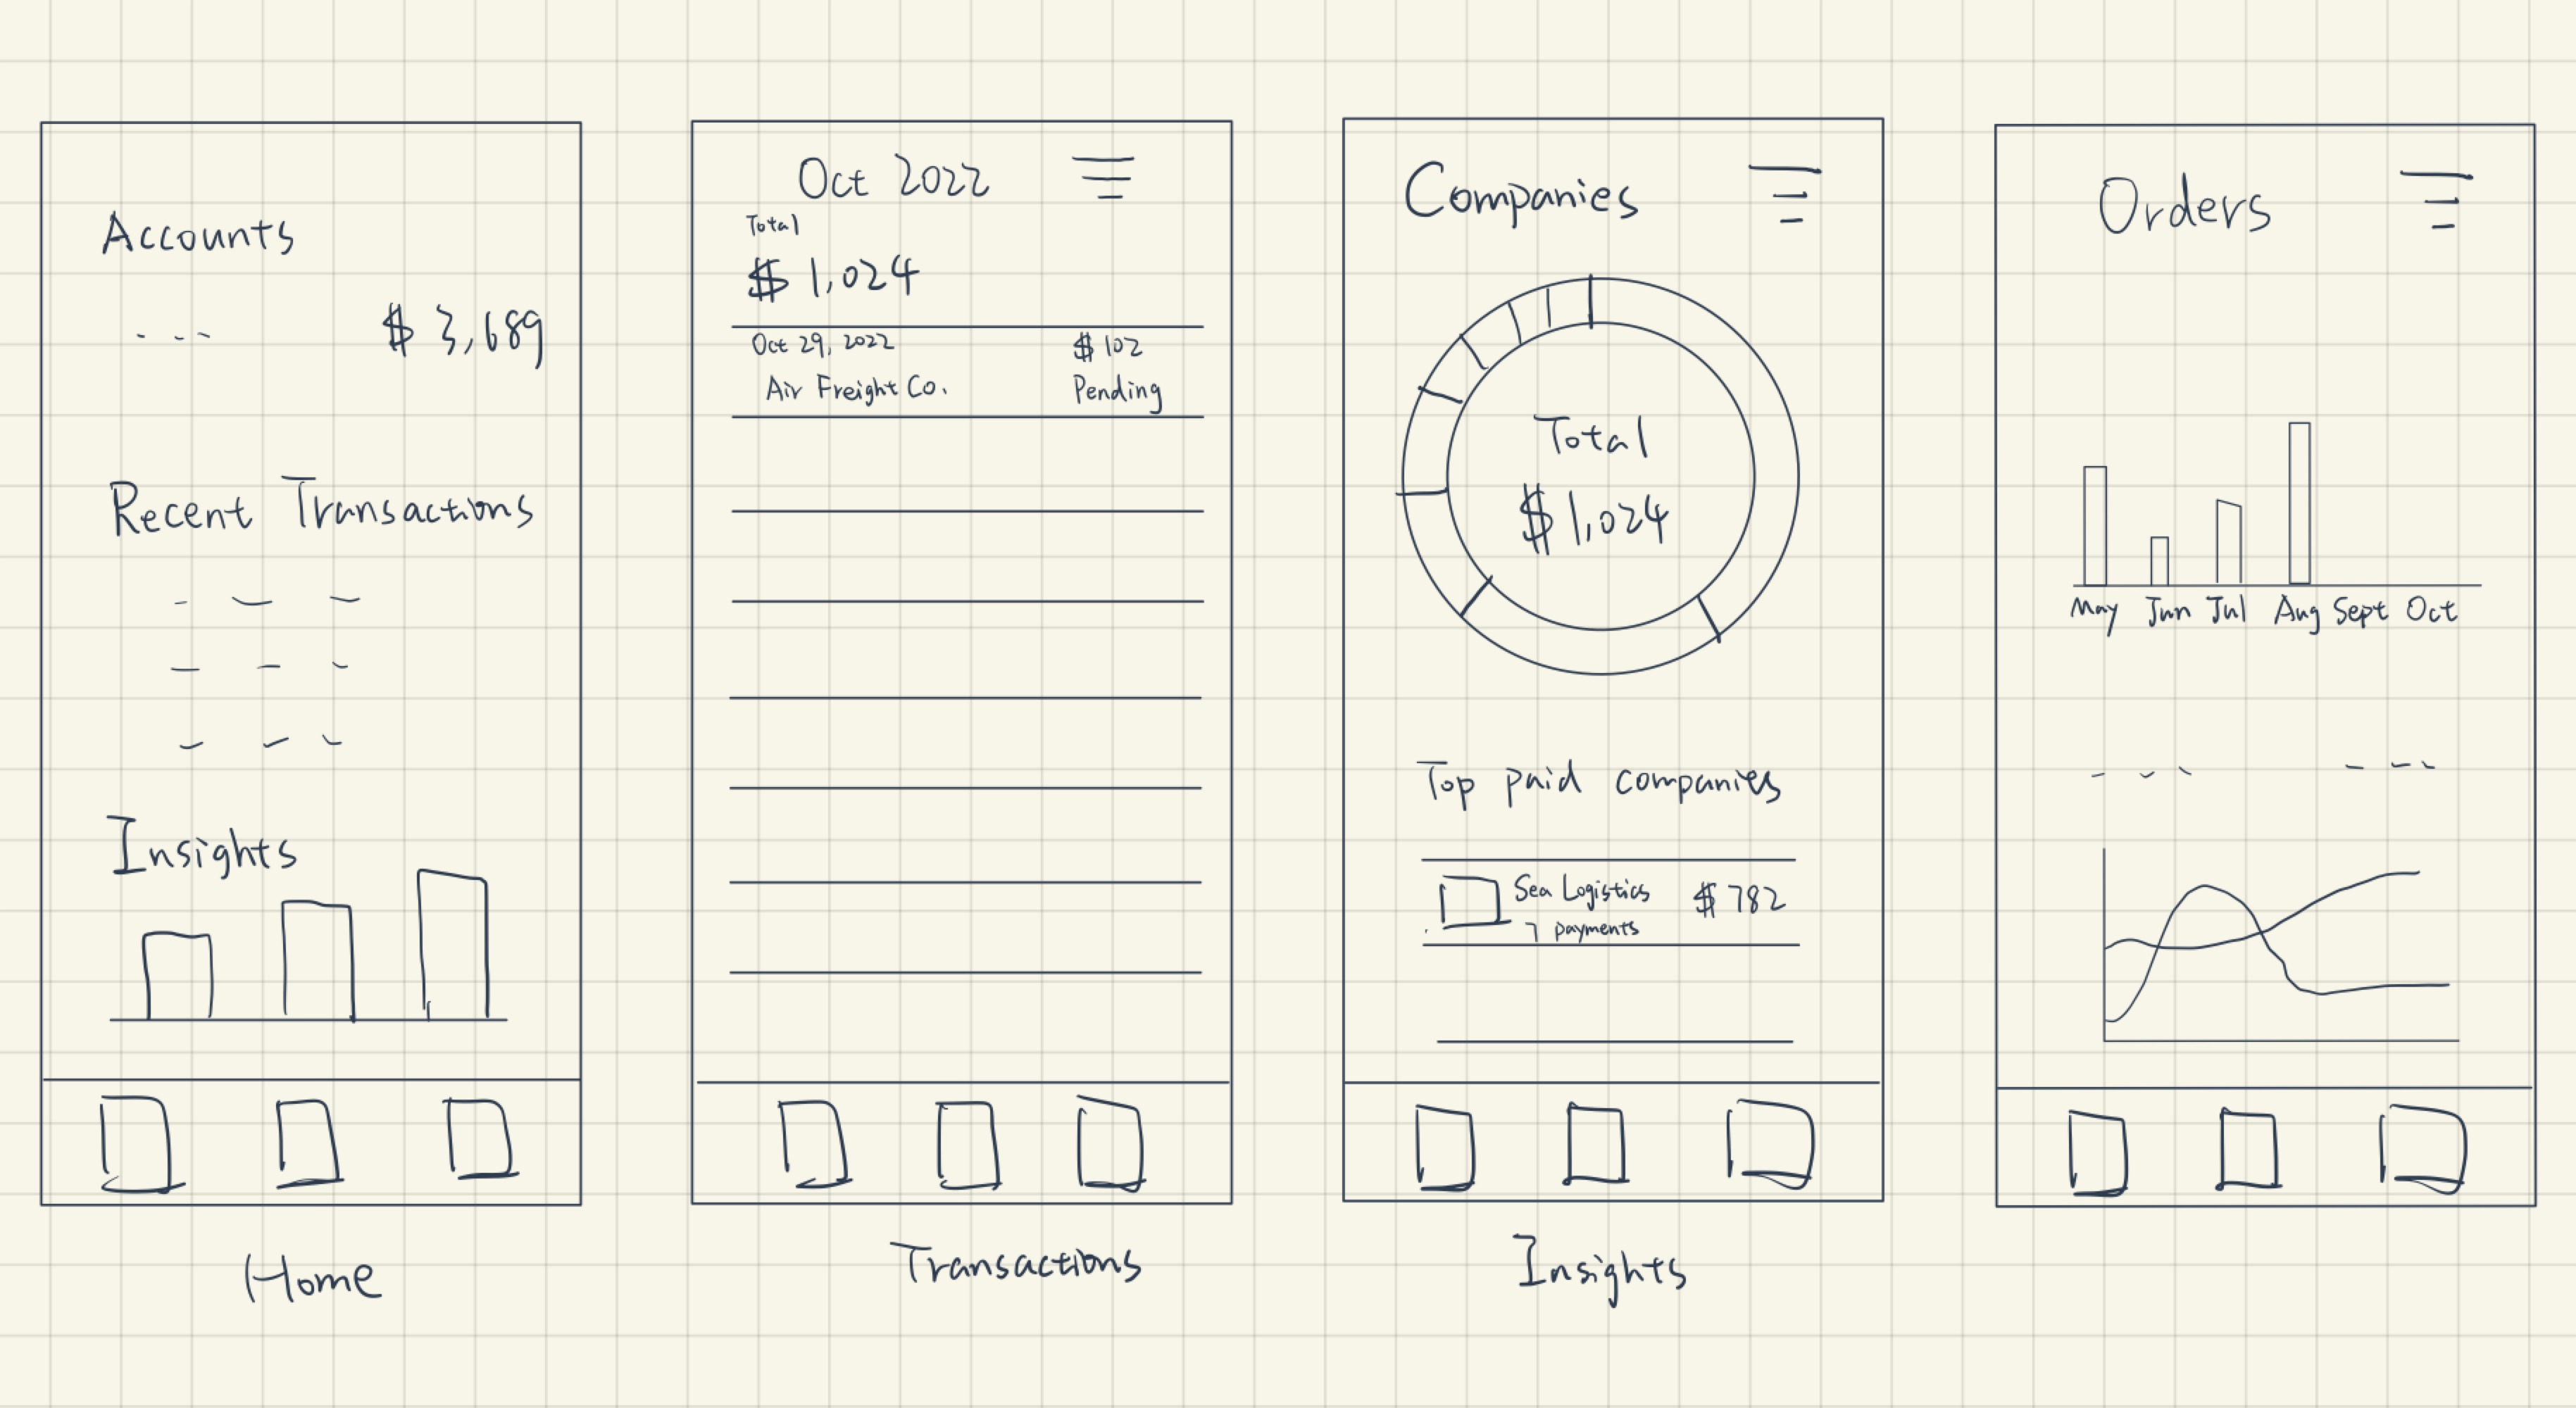 Accounts
$ 3,689
Recent Transactions
Insights
Home
Oct 2022
Total
$ 1,024
Oct 29, 2022 $ 102
Air Freight Co. Pending
Transactions
Companies
Total
$ 1,024
Top paid companies
Sea Logistics $ 782
7 payments
Insights
Orders
May Jun Jul Aug Sept Oct